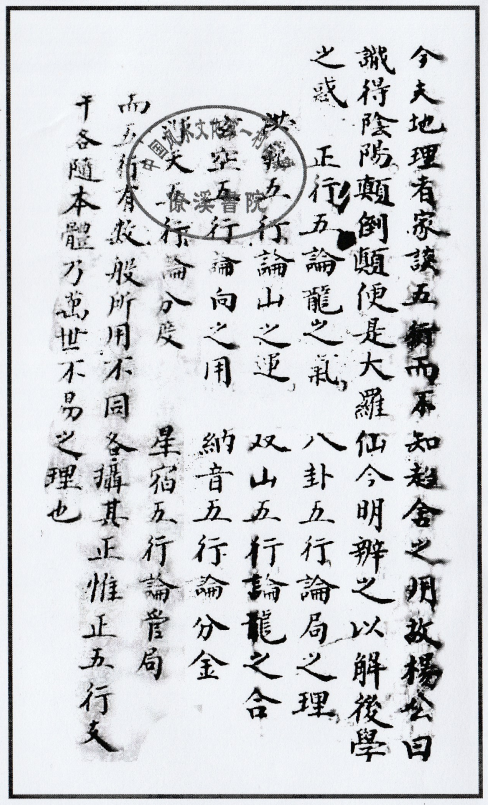 今夫地理者家談五行而不知趋舍之明故楊公曰
識得陰陽顛倒顛便是大羅仙今明辨之以解後學
之惑 正行五論龍之氣 八卦五行論局之理
洪範五行論山之運 双山五行論龍之合
空五行論向之用 納音五行論分金
天五行論分度 星宿五行論管局
而五行有数般所用不同各攝其正惟正五行支
干各隨本體乃萬世不易之理也
僚溪書院